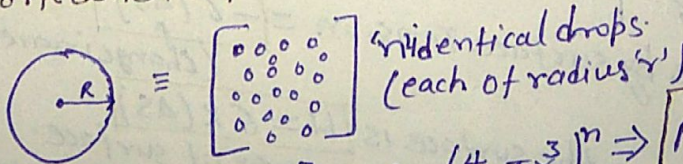 'n' identical drops.
R
(each of radius 'r')
(4 3)ⁿ ⇒